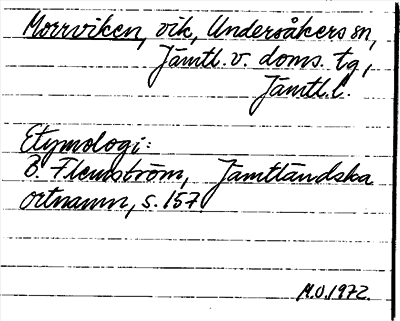 Morrviken, vik, Undersåkers sn,
Jämtl. v. doms. tg,
Jämtl. l.
Etymologi:
B. Flemström, Jämtländska
ortnamn, s. 157.
M.O. 1972.